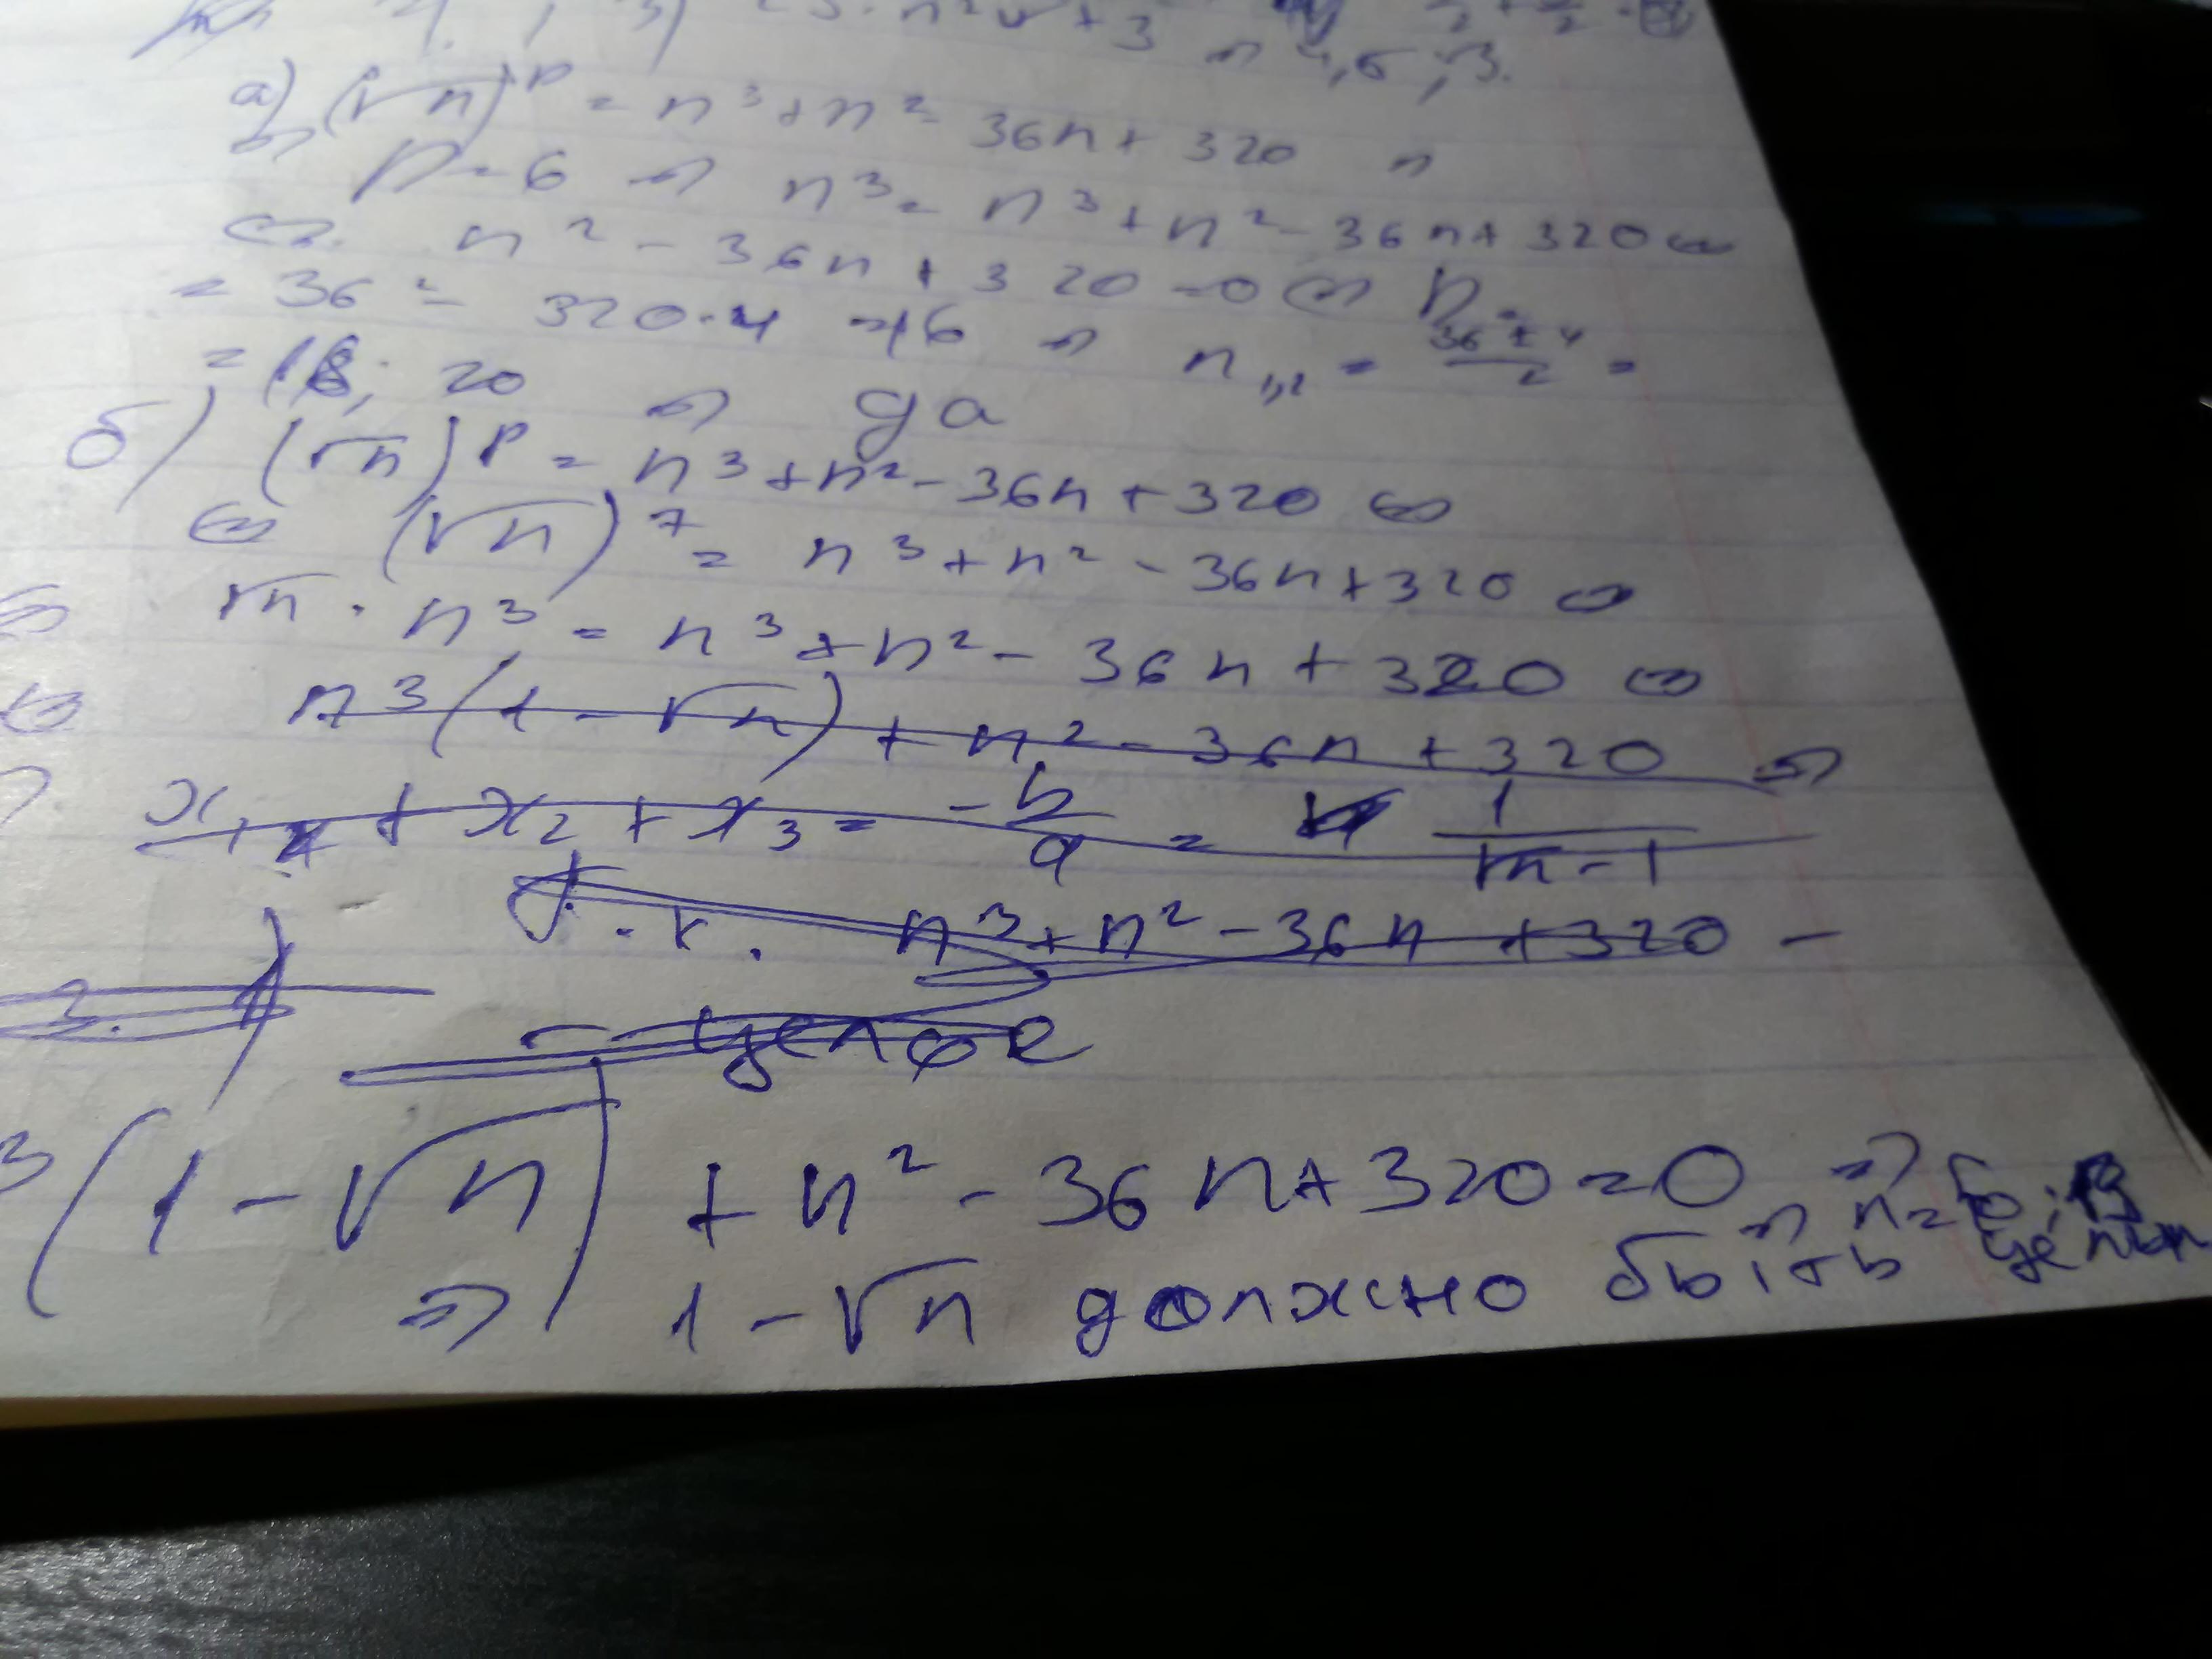 а) (√n)^p = n³ + n² - 36n + 320 ⇒
p = 6 ⇒ n³ = n³ + n² - 36n + 320 ⇔
⇔ n² - 36n + 320 = 0 ⇔ D =
= 36² - 320·4 = 16 ⇒ n₁,₂ = (36 ± 4)/2 =
= 16; 20 ⇒ да
б) (√n)^p = n³ + n² - 36n + 320 ⇔
⇔ (√n)⁷ = n³ + n² - 36n + 320 ⇔
⇔ √n · n³ = n³ + n² - 36n + 320 ⇔
⇔ n³(1 - √n) + n² - 36n + 320 ⇒
x₁ + x₂ + x₃ = -b/a = 1/(√n - 1)
Т.к. n³ + n² - 36n + 320 -
- целое
³(1 - √n) + n² - 36n + 320 = 0 ⇒
⇒ 1 - √n должно быть целым